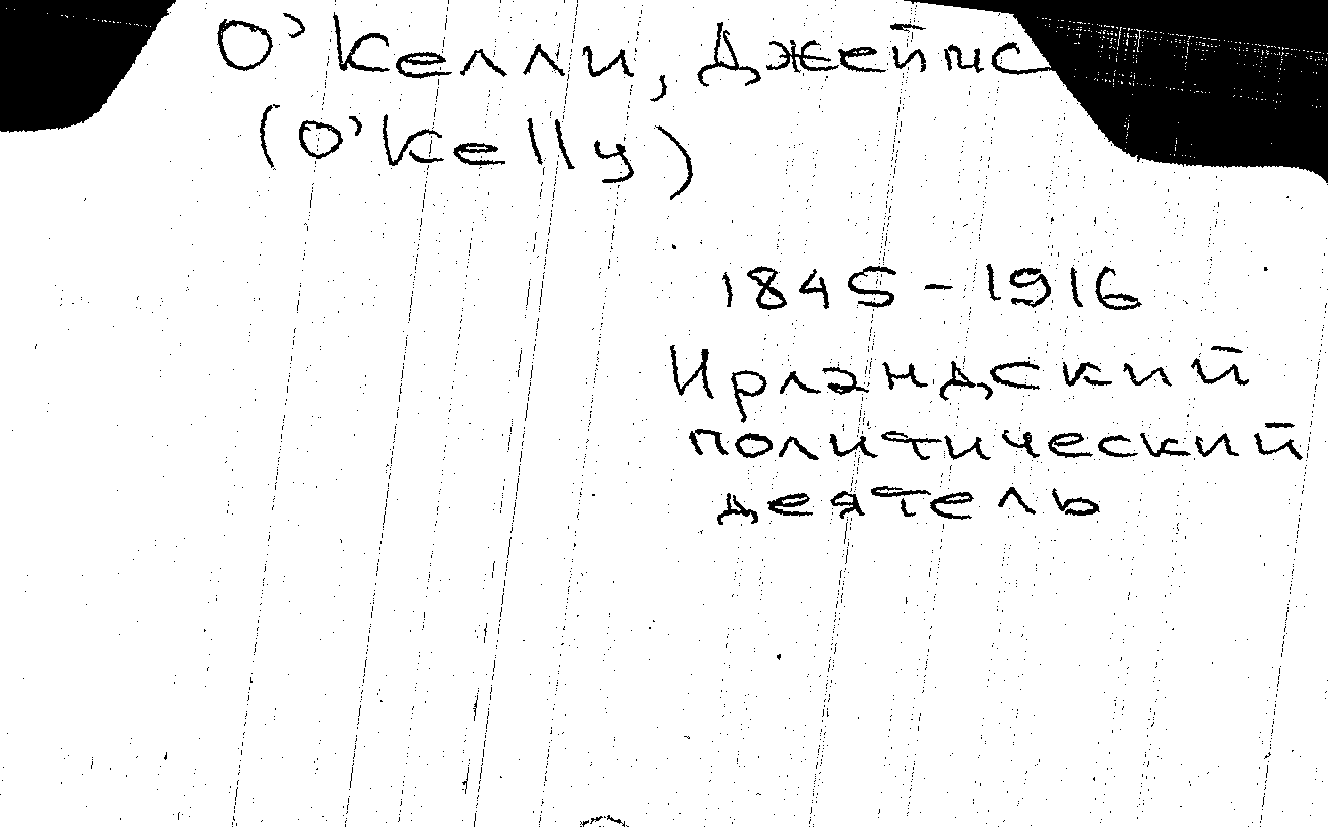 О'Келли, Джеймс
(O'Kelly)
1845-1916
Ирландский
политический
деятель